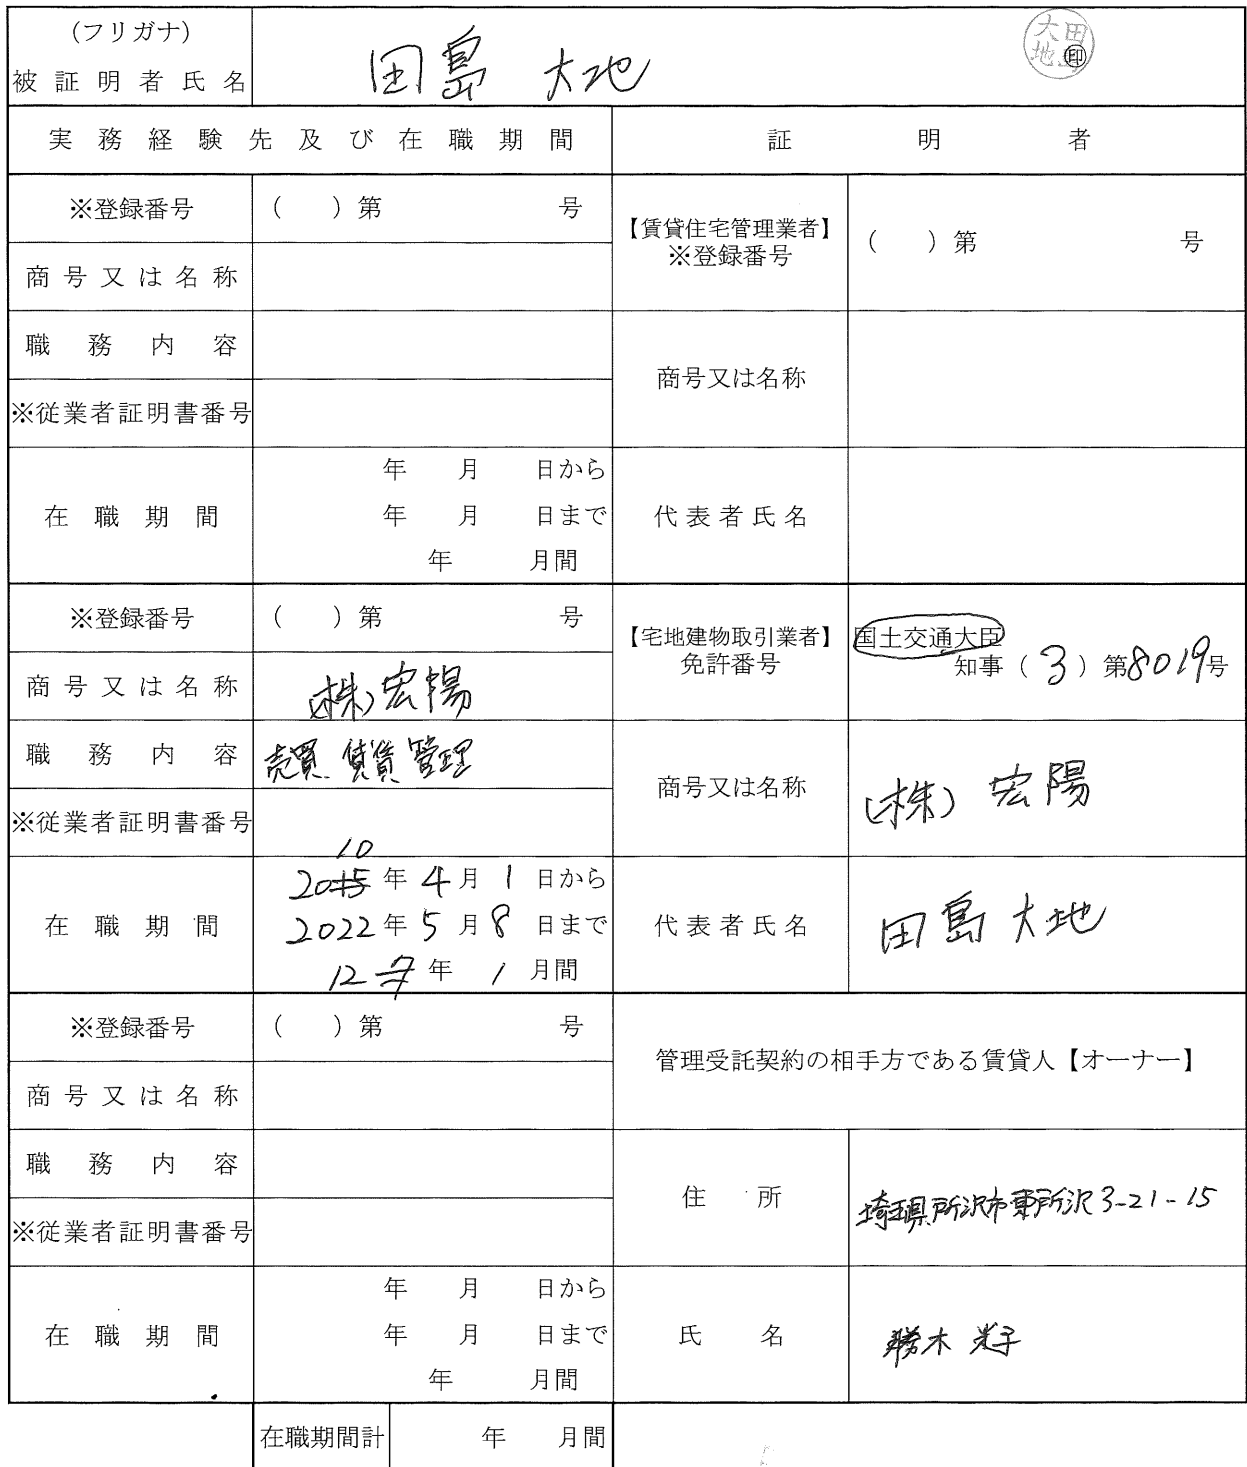 (フリガナ)
被証明者氏名 田島 大地 大地 田島 ㊞
実務経験先及び在職期間 証明者
※登録番号 ( ) 第 号
【賃貸住宅管理業者】
※登録番号 ( ) 第 号
商号又は名称
職務内容
商号又は名称
※従業者証明書番号
在職期間
年 月 日から
年 月 日まで
年 月間
代表者氏名
※登録番号 ( ) 第 号
【宅地建物取引業者】
免許番号
国土交通大臣
知事 ( 3 ) 第8019号
商号又は名称 (株)宏陽
職務内容 売買、賃貸管理
商号又は名称 (株) 宏陽
※従業者証明書番号
在職期間
10
2015年4月1日から
2022年5月8日まで
12 7年1月間
代表者氏名 田島 大地
※登録番号 ( ) 第 号
管理受託契約の相手方である賃貸人【オーナー】
商号又は名称
職務内容
住所 埼玉県所沢市東所沢3-21-15
※従業者証明書番号
在職期間
年 月 日から
年 月 日まで
年 月間
氏名 勝木 光子
在職期間計 年 月間